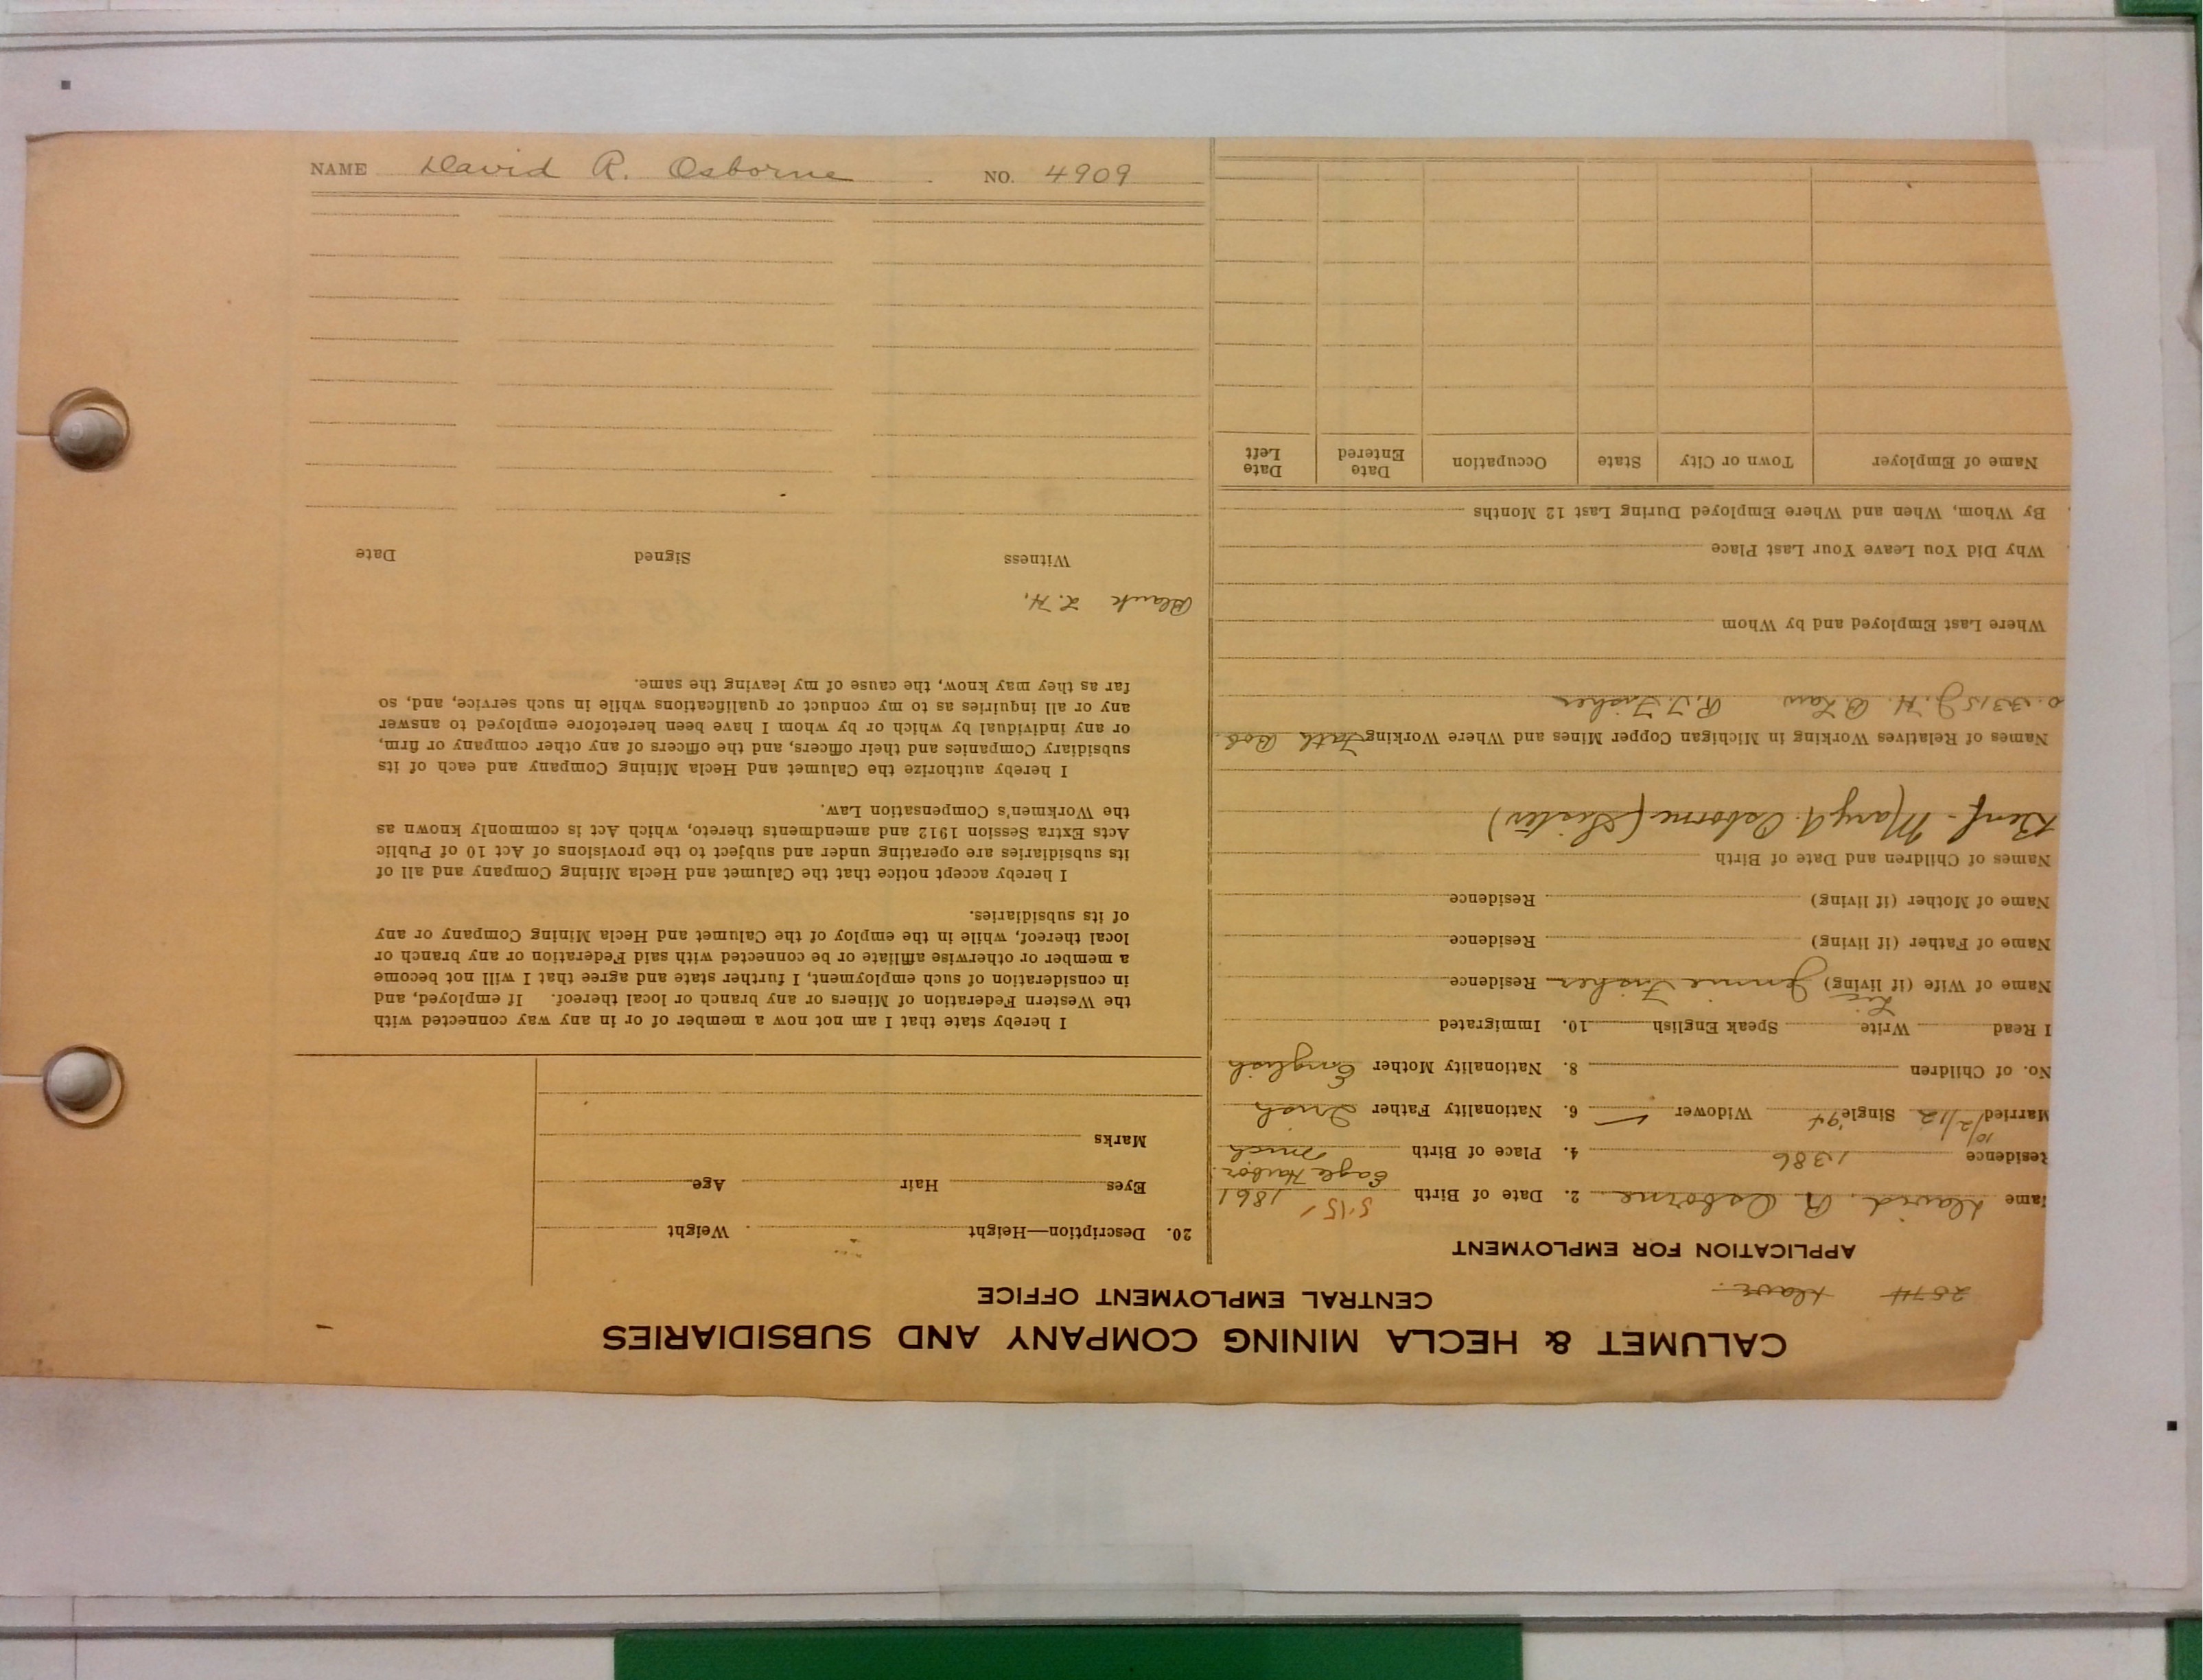 NAME David R. Osborne NO. 4909
CALUMET & HECLA MINING COMPANY AND SUBSIDIARIES
CENTRAL EMPLOYMENT OFFICE
2574
APPLICATION FOR EMPLOYMENT
ame David R. Osborne 2. Date of Birth 5-15 1861
Residence 1386 4. Place of Birth Eagle Harbor Mich
Married 10/2/12 Single '94 Widower ✓ 6. Nationality Father Irish
No. of Children 8. Nationality Mother English
I Read Write Speak English 10. Immigrated
Name of Wife (if living) Jennie Fisher Residence
Name of Father (if living) Residence
Name of Mother (if living) Residence
Names of Children and Date of Birth
Benf - Mary A. Osborne (Sister)
Names of Relatives Working in Michigan Copper Mines and Where Working Bob.
3315 J. H. B Law R. J. Fisher
Where Last Employed and by Whom
Why Did You Leave Your Last Place
By Whom, When and Where Employed During Last 12 Months
Name of Employer Town or City State Occupation Date Entered Date Left
20. Description—Height Weight
Eyes Hair Age
Marks
I hereby state that I am not now a member of or in any way connected with
the Western Federation of Miners or any branch or local thereof. If employed, and
in consideration of such employment, I further state and agree that I will not become
a member or otherwise affiliate or be connected with said Federation or any branch or
local thereof, while in the employ of the Calumet and Hecla Mining Company or any
of its subsidiaries.
I hereby accept notice that the Calumet and Hecla Mining Company and all of
its subsidiaries are operating under and subject to the provisions of Act 10 of Public
Acts Extra Session 1912 and amendments thereto, which Act is commonly known as
the Workmen's Compensation Law.
I hereby authorize the Calumet and Hecla Mining Company and each of its
subsidiary Companies and their officers, and the officers of any other company or firm,
or any individual by which or by whom I have been heretofore employed to answer
any or all inquiries as to my conduct or qualifications while in such service, and, so
far as they may know, the cause of my leaving the same.
Blank L. H.
Witness Signed Date